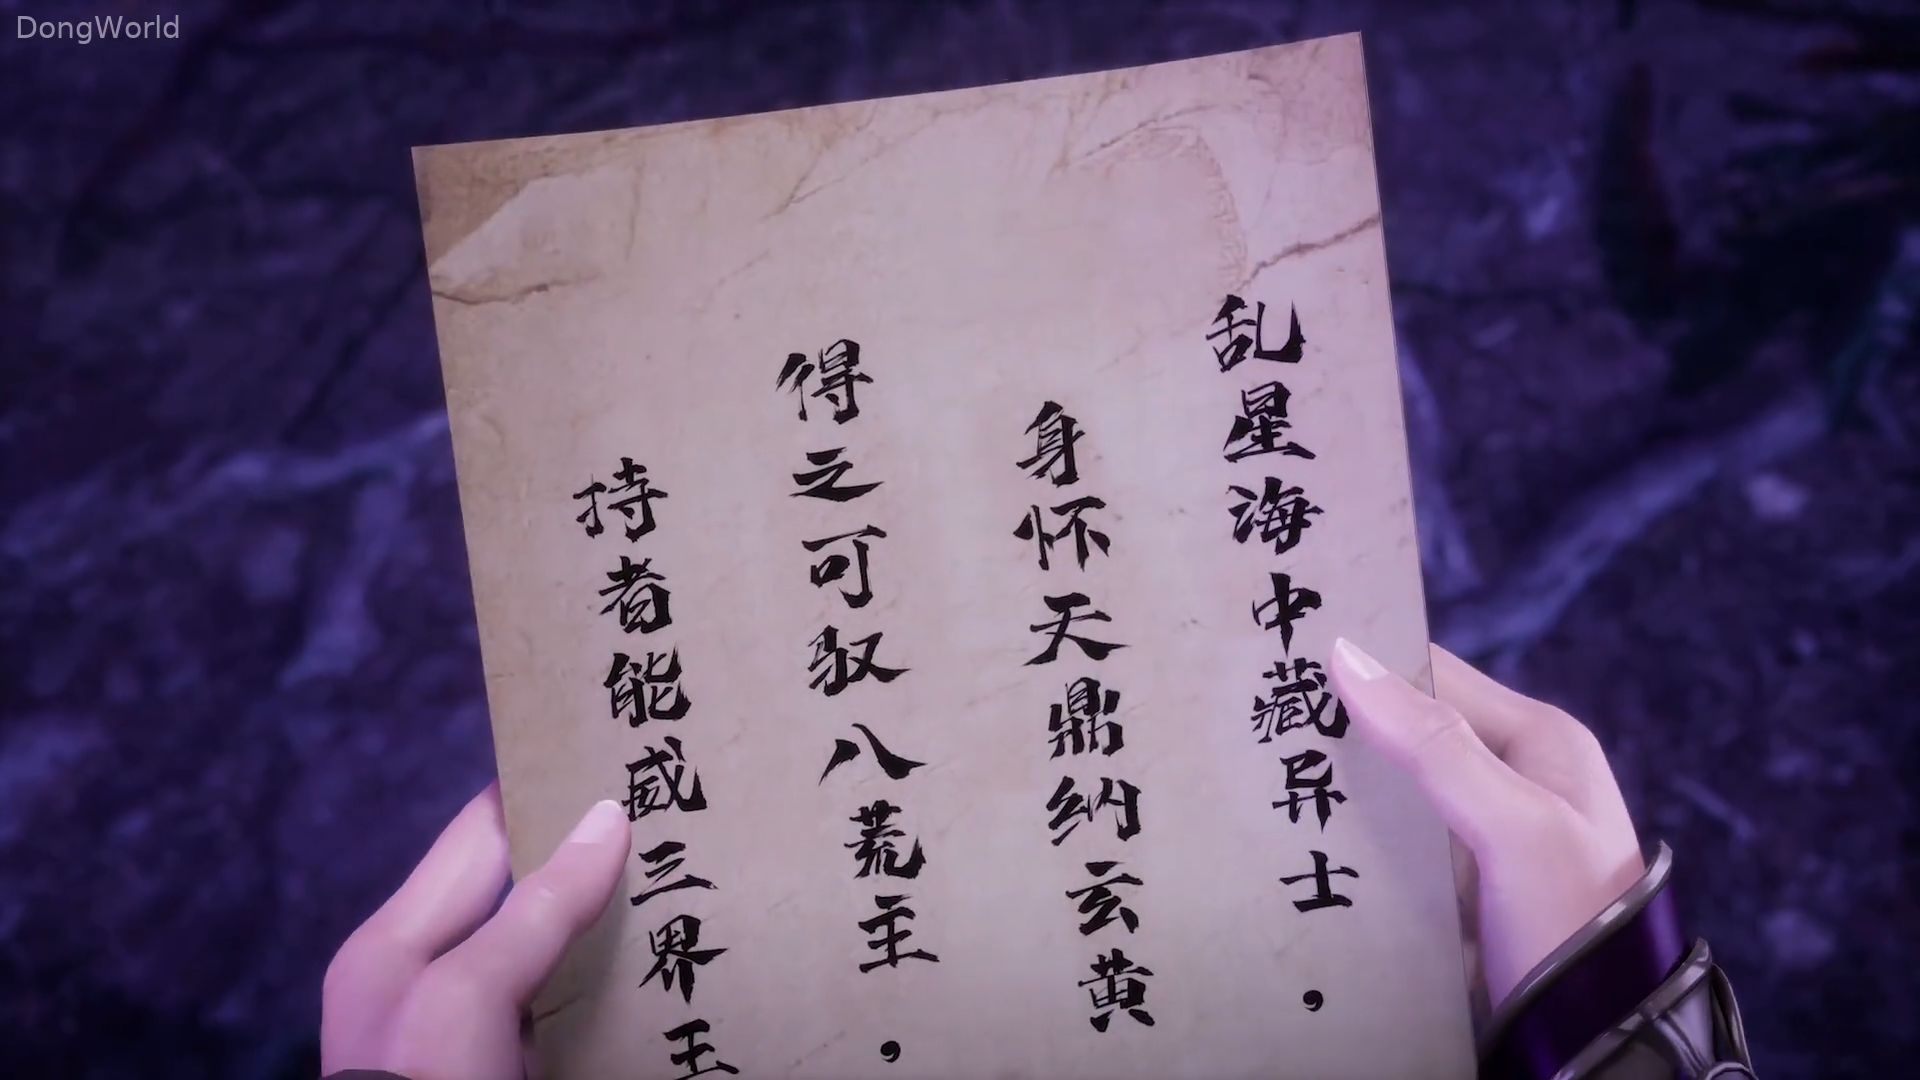 DongWorld
乱星海中藏异士，
身怀天鼎纳玄黄
得之可驭八荒主，
持者能威三界王